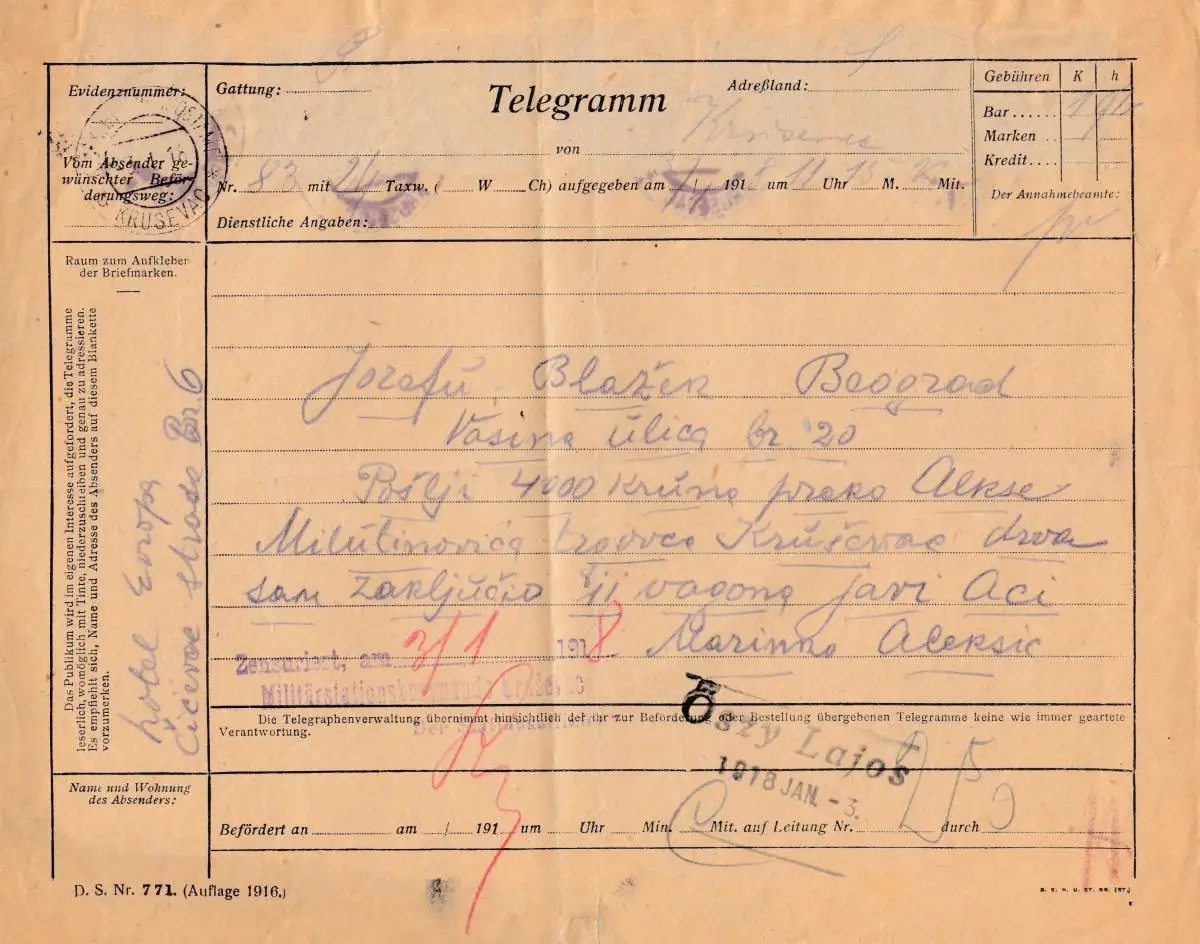 Evidenznummer:
Vom Absender ge-
wünschter Beför-
derungsweg:
KRUSEVAC
Gattung:
Telegramm
Adreßland:
von Krusevac
Nr. 83 mit 24 Taxw. ( W Ch) aufgegeben am / 191 um 11 Uhr M. Mit.
Dienstliche Angaben:
Gebühren K h
Bar
Marken
Kredit
Der Annahmebeamte:
Raum zum Aufkleben
der Briefmarken.
Das Publikum wird im eigenen Interesse aufgefordert, die Telegramme
leserlich, womöglich mit Tinte, niederzuschreiben und genau zu adressieren.
Es empfiehlt sich, Name und Adresse des Absenders auf diesem Blankette
vorzumerken.
hotel Evropa
Ćićevac strada Br. 6
Jozefu Blažek Beograd
Vasina ulica br 20
Pošlji 4000 kruna preko Alekse
Milutinovića trgovca Kruševac drva
sam zaključio vagona javi Aci
Marinko Aleksić
Zensuriert, am 3/1 1918
Militärstationskommando Krusevac
Öszy Lajos
1918 JAN. - 3.
Die Telegraphenverwaltung übernimmt hinsichtlich der ihr zur Beförderung oder Bestellung übergebenen Telegramme keine wie immer geartete
Verantwortung.
Name und Wohnung
des Absenders:
Befördert an am / 191 um Uhr Min. Mit. auf Leitung Nr. durch
D. S. Nr. 771. (Auflage 1916.)